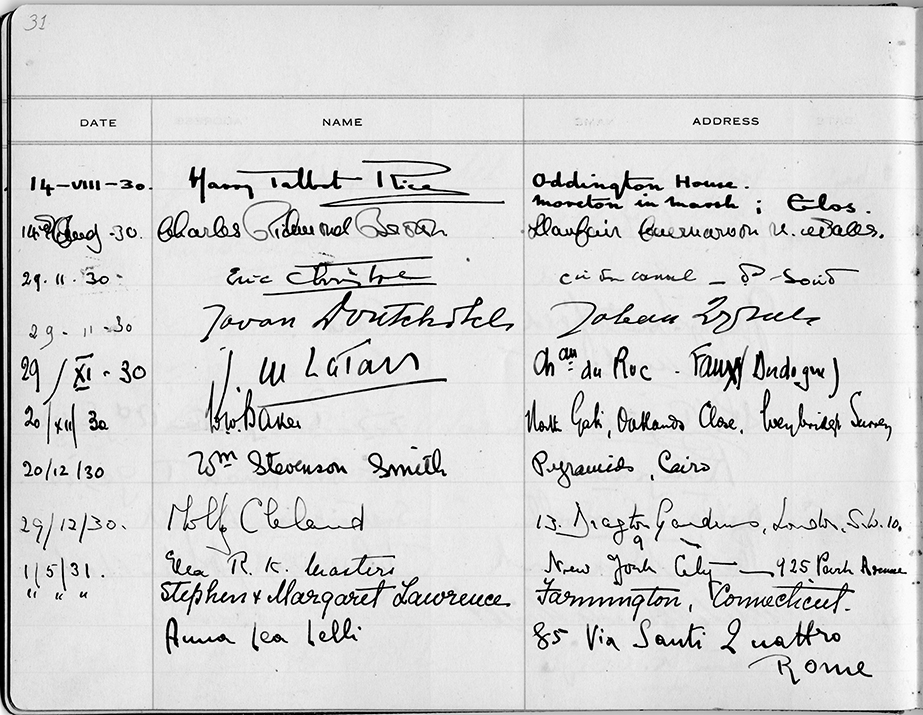 31
DATE NAME ADDRESS
14-VIII-30. Harry Talbot Rice Oddington House.
moreton in marsh; Glos.
14th Aug -30. Charles Richmond Brown Llanfair Caernarvon N. Wales.
29.11.30- Eric
29-11-30
29/XI-30 du Roc
20/XII/30 Baker North Gate, Oatlands Close, Weybridge Surrey
20/12/30 Wm Stevenson Smith Pyramids, Cairo
29/12/30. Molly Cleland 13. Drayton Gardens, London, S.W. 10.
1/5/31. R. K. Masters New York City — 925 Park Avenue
" " " Stephen & Margaret Lawrence Farmington, Connecticut.
Anna Lea Lelli 85 Via Santi Quattro
Rome